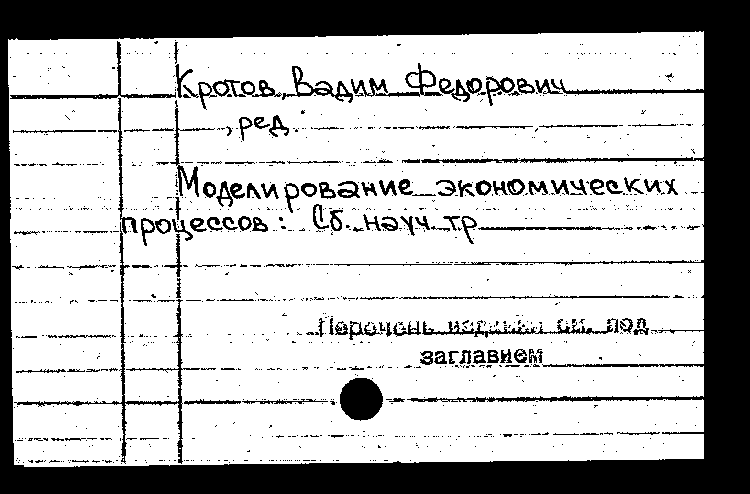 Кротов, Вадим Федорович
, ред.
Моделирование экономических
процессов: Сб. науч. тр
Перечень изданий см. под
заглавием